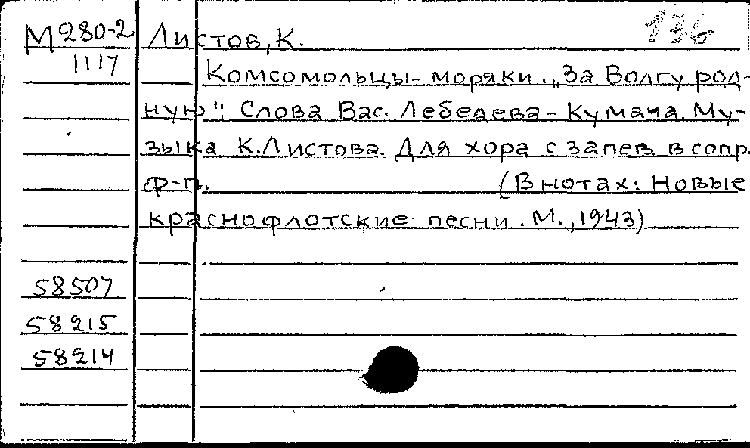 М 280-2 Листов, К. 136
1117
Комсомольцы-моряки. „За Волгу род-
ную". Слова Вас. Лебедева-Кумача. Му-
зыка К. Листова. Для хора с запев. в сопр.
ф-п. (В нотах: Новые
краснофлотские песни. М., 1943)
58507
58215
58214